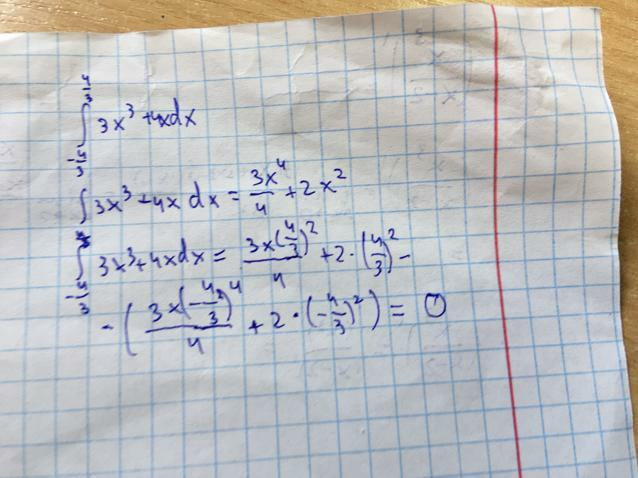 ∫_{-4/3}^{4/3} 3x³+4xdx
∫ 3x³+4x dx = 3x⁴/4 + 2x²
∫_{-4/3}^{4/3} 3x³+4xdx = 3x(4/3)²/4 + 2·(4/3)² -
- (3x(-4/3)⁴/4 + 2·(-4/3)²) = 0